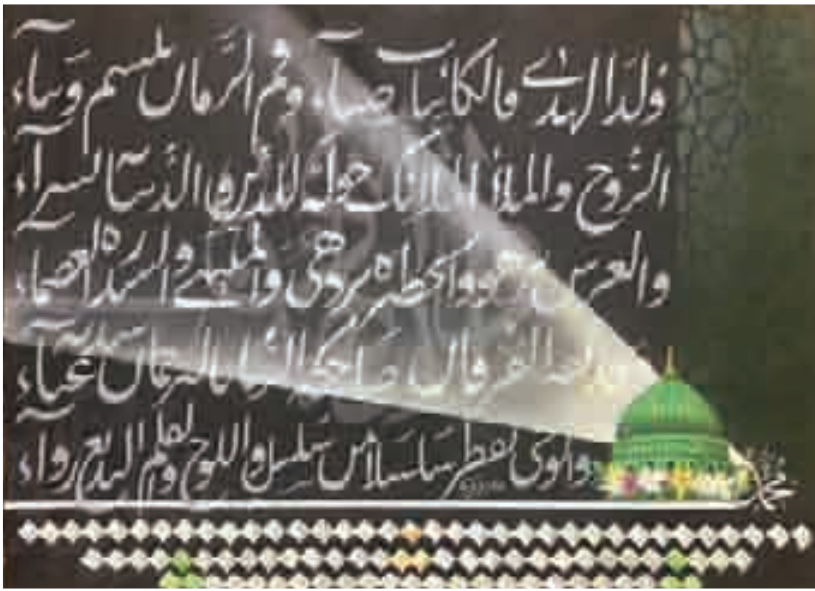 ولد الهدى فالكائنات ضياء، وفم الزمان تبسم وثناء،
الروح والملأ الملائك حوله للدين والدنيا بشراء،
والعرش يزهو والحظيرة تزدهي والمنتهى والسدرة العصماء،
الفرقان ضاحكة الربا بالترجمان غناء،
والوحي يقطر سلسلا من سلسل واللوح والقلم البديع رواء،
محمد